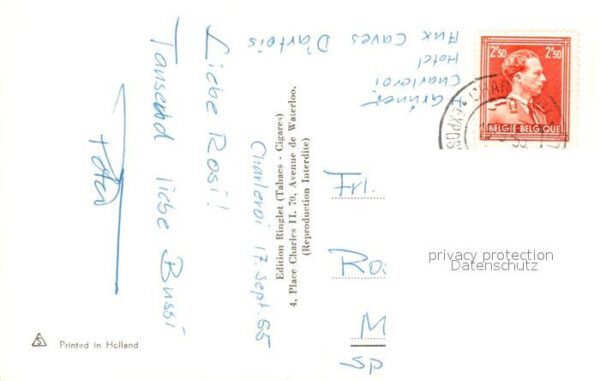 Aux Caves D'artois
Hotel
Charleroi
Charleroi 17. Sept. 55
Liebe Rosi!
Tausend liebe Bussi
Peter
Edition Ringlet (Tabacs - Cigares)
4, Place Charles II, 70, Avenue de Waterloo.
(Reproduction Interdite)
2F50 2F50
BELGIE-BELGIQUE
Frl.
Ro
M
Sp
privacy protection
Datenschutz
Printed in Holland